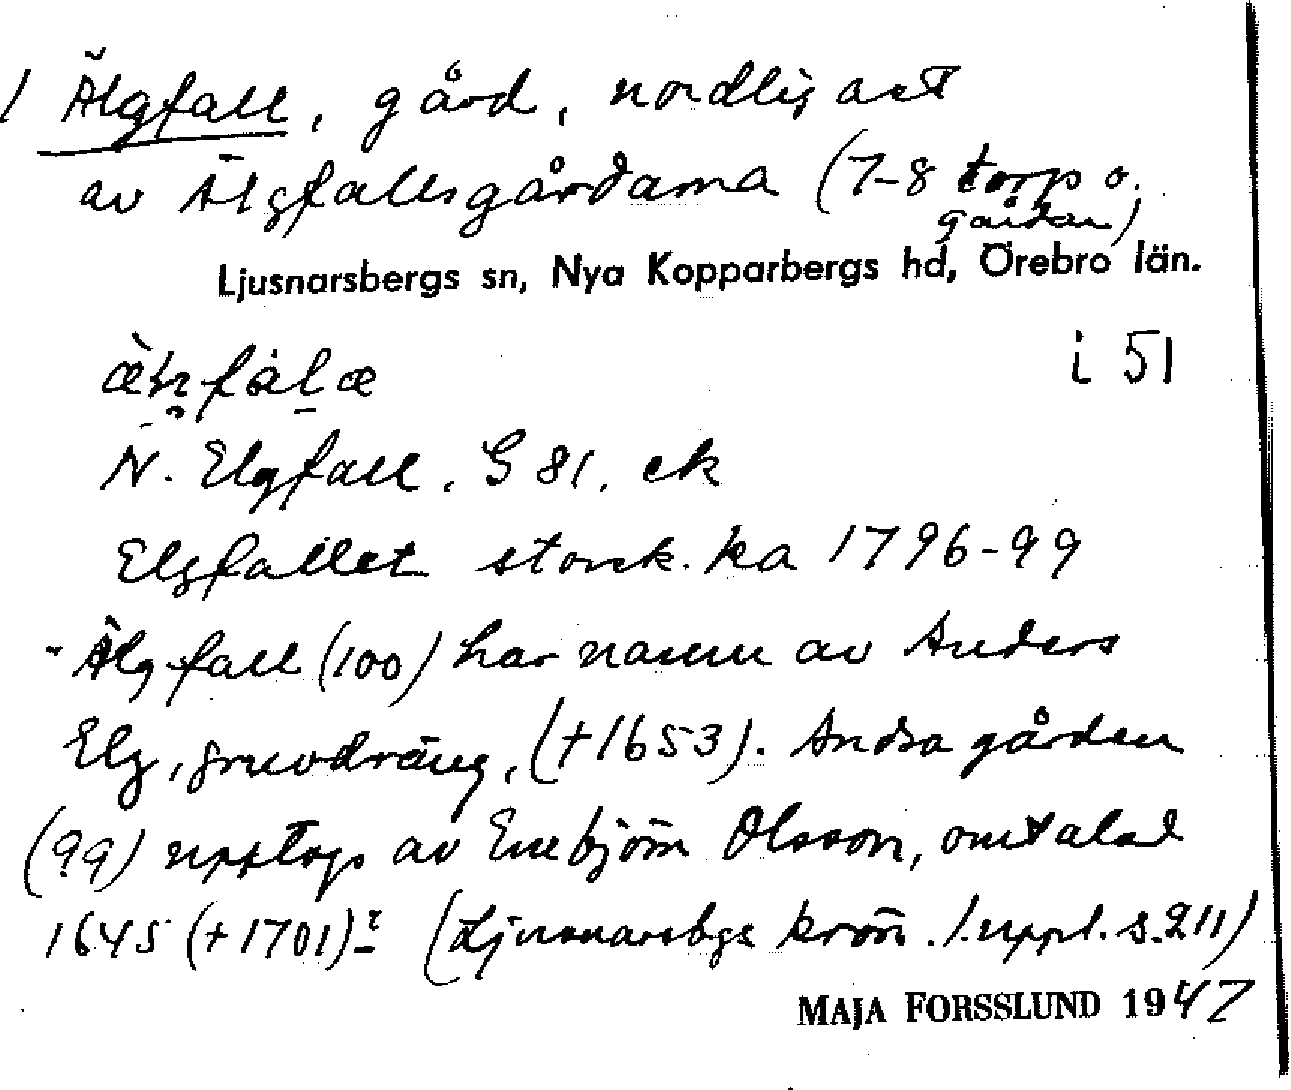 1 Älgfall, gård, nordligast
av Älgfallsgårdarna (7-8 torp o.
gårdar)
Ljusnarsbergs sn, Nya Kopparbergs hd, Örebro län.
i 51
N. Elgfall. G 81. ek
Elgfallet storsk. ka 1796-99
"Älgfall (100) har namn av Anders
Elg, gruvdräng, (+1653). Andra gården
(99) upptogs av Enebjörn Olsson, omtalad
1645 (+1701)" (Ljusnarsbgs krön. 1. uppl. s. 211)
MAJA FORSSLUND 1947